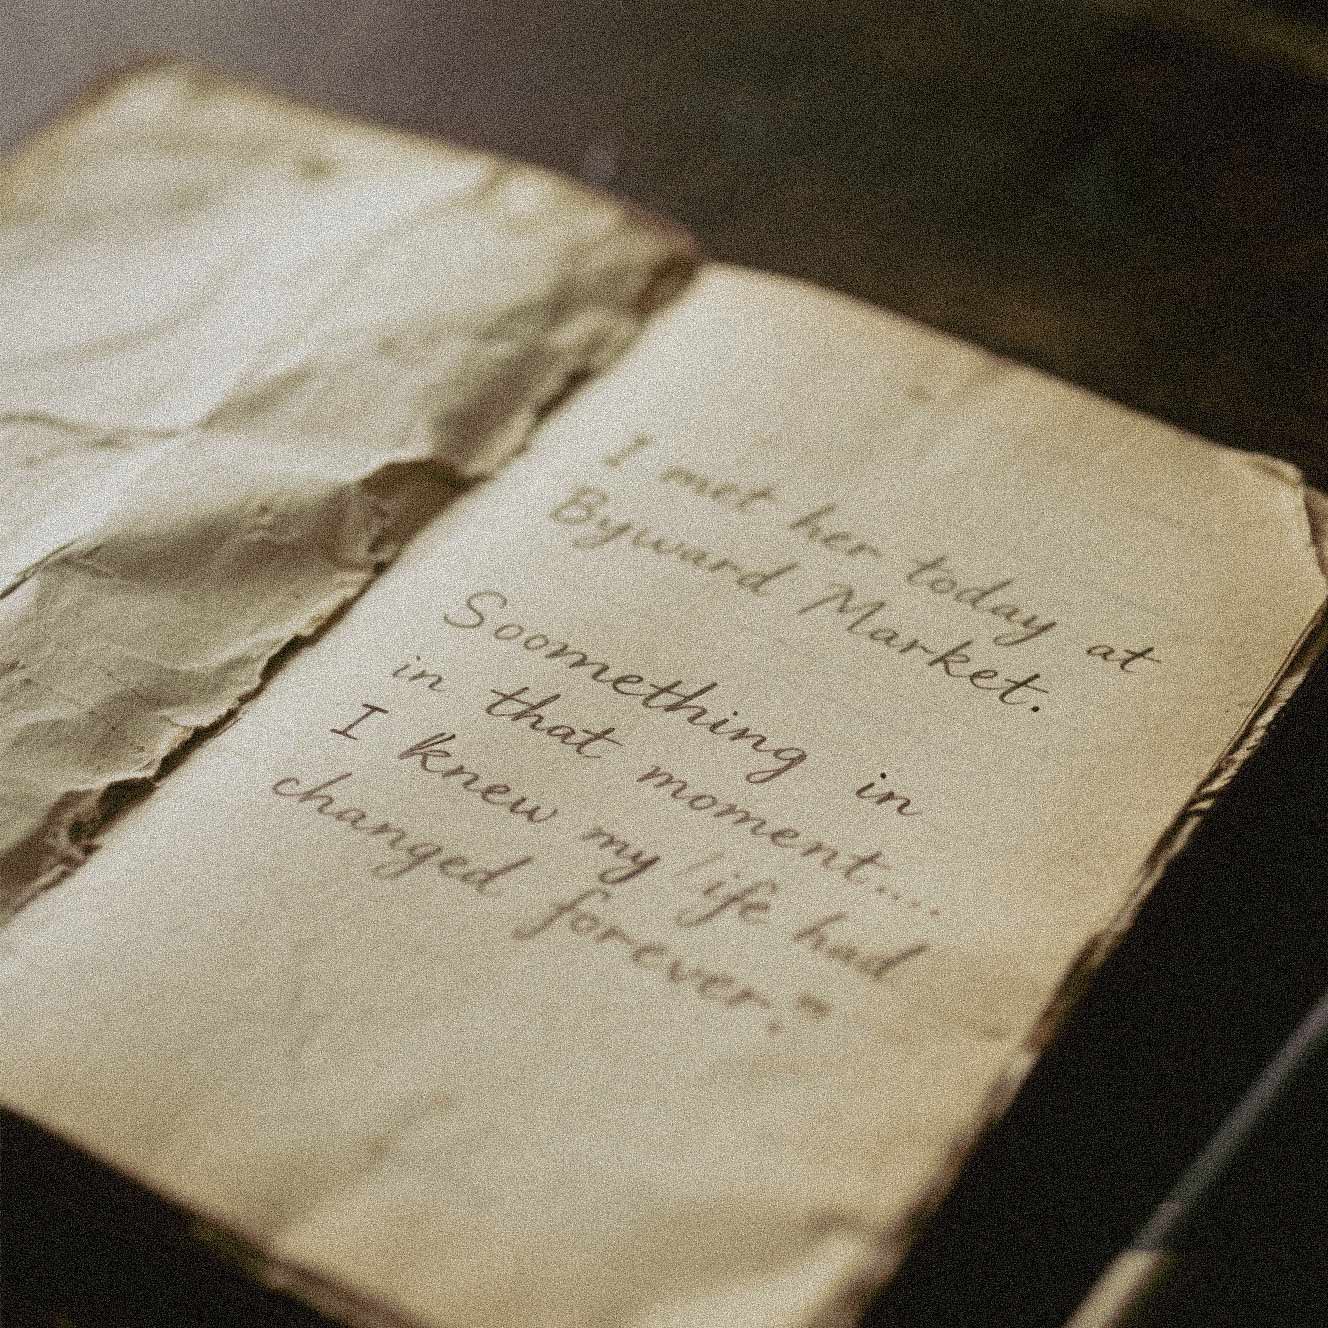 I met her today at
Byward Market.
Soomething in
in that moment...
I knew my life had
changed forever."